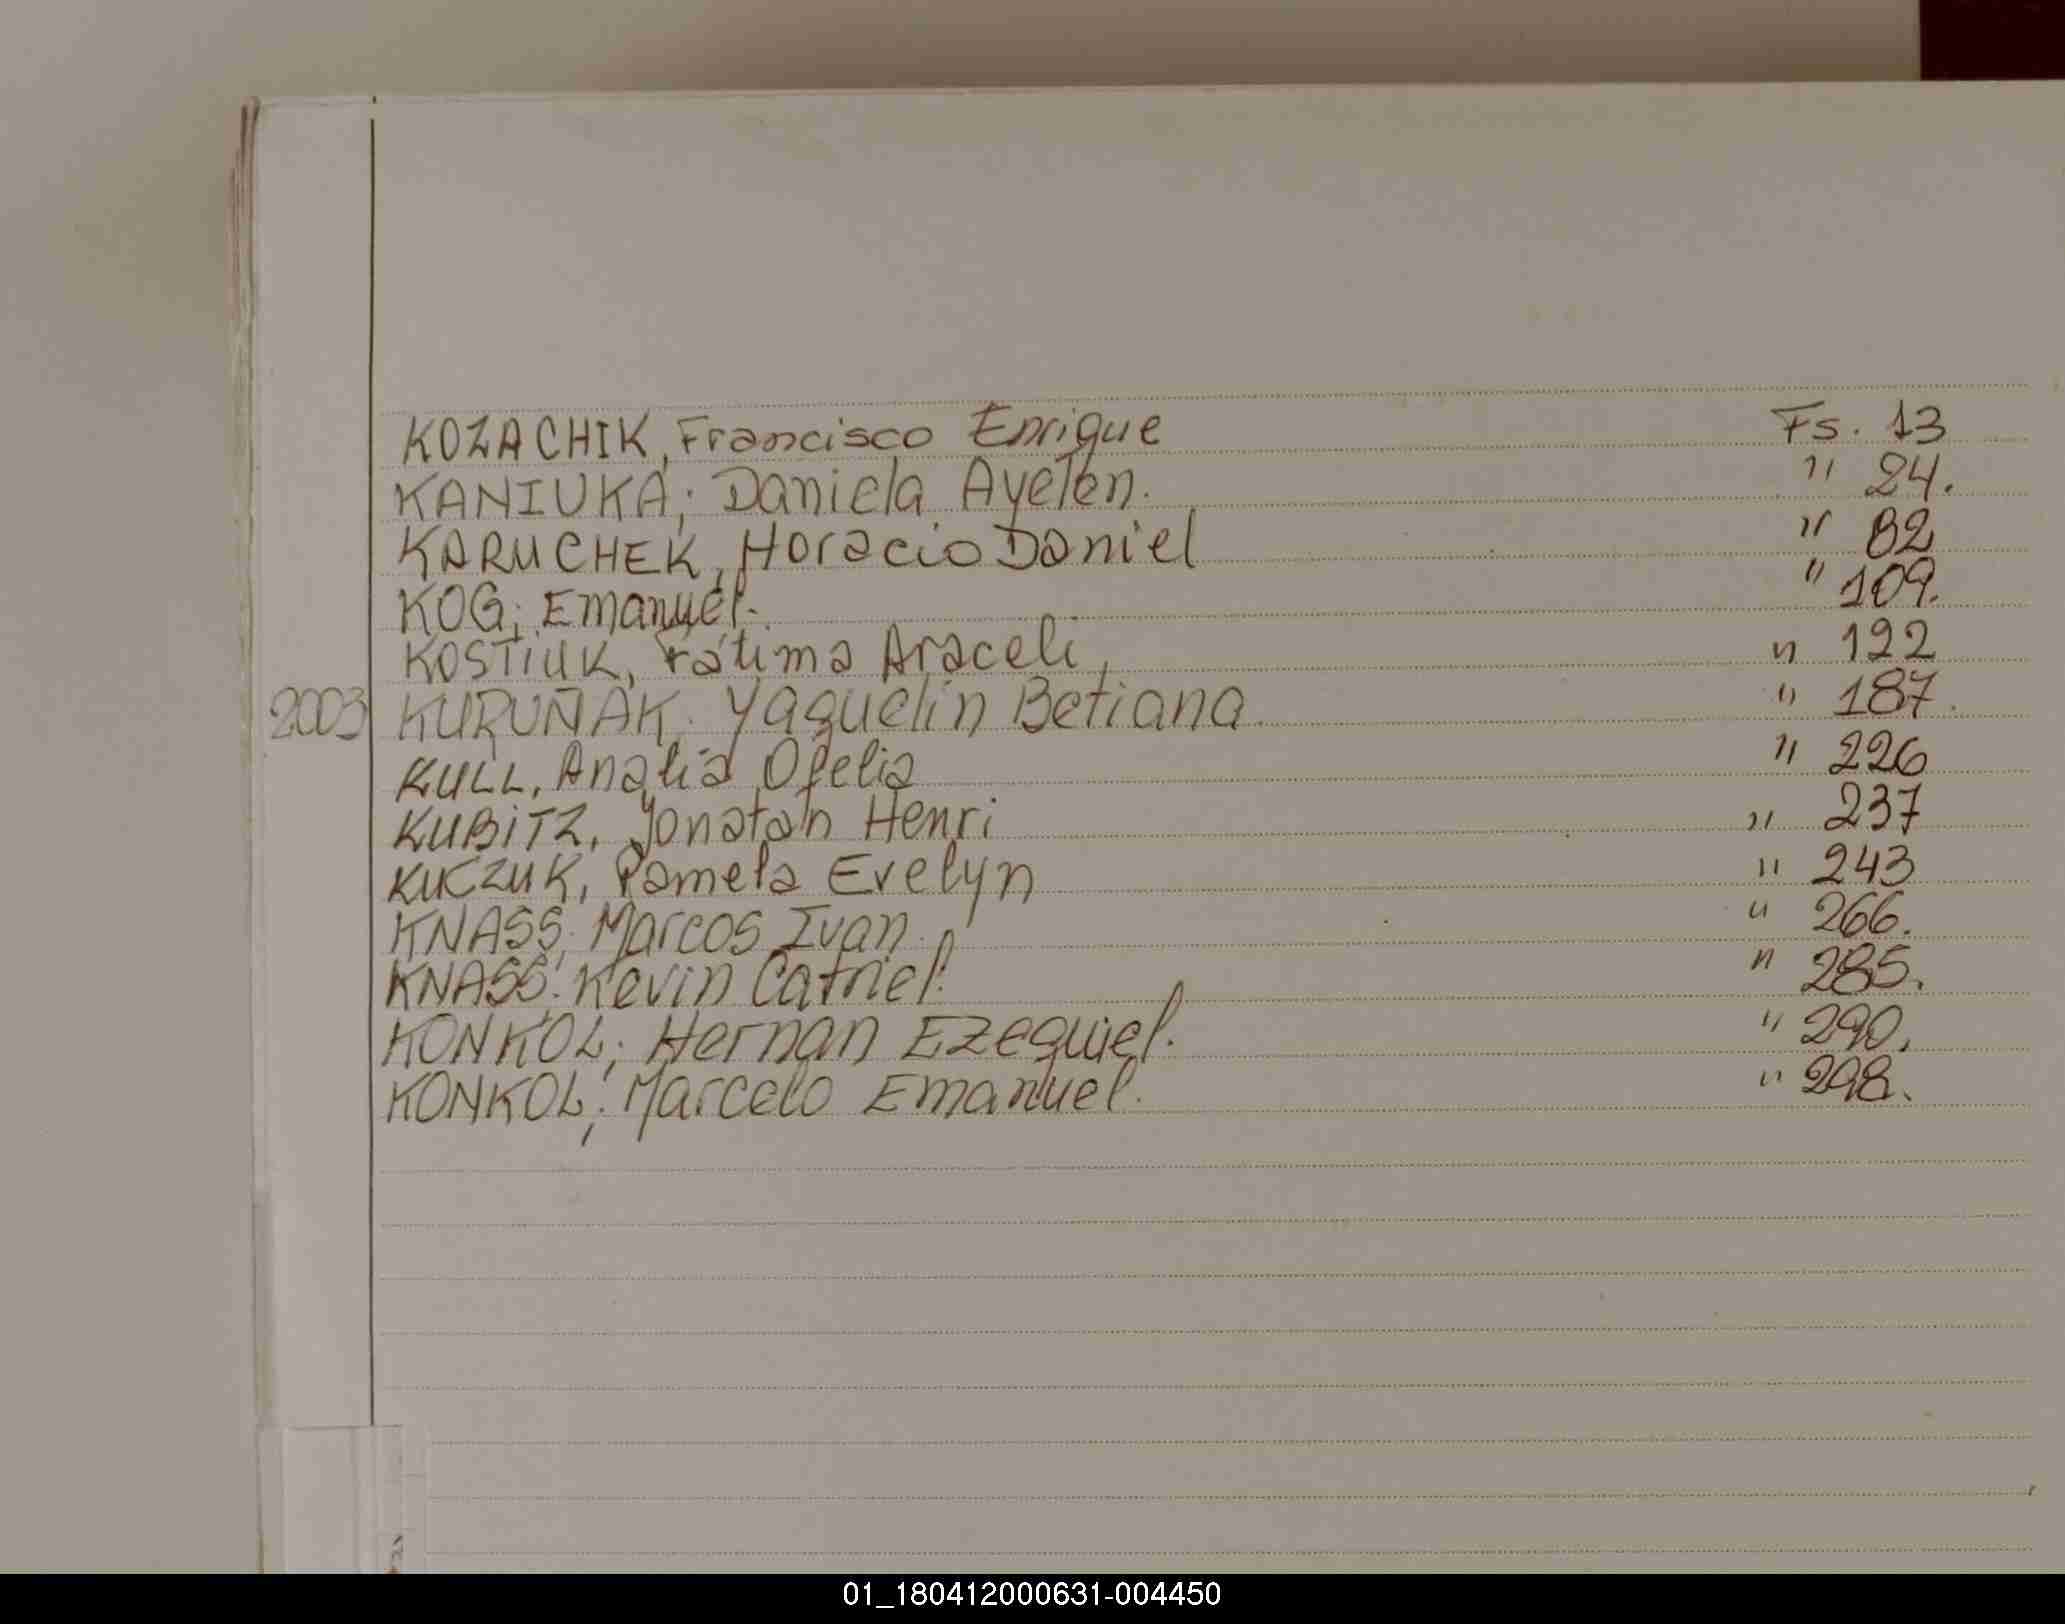 KOZACHIK, Francisco Enrique Fs. 13
KANIUKA; Daniela Ayelén. " 24.
KARUCHEK, Horacio Daniel " 82
KOG; Emanuel. " 109.
KOSTIUK, Fátima Araceli, " 122
2003 KURUÑAK. Yaquelin Betiana. " 187.
KULL, Analía Ofelia " 226
KUBITZ, Yonatan Henri " 237
KUCZUK, Pamela Evelyn " 243
KNASS; Marcos Ivan. " 266.
KNASS; Kevin Catriel. " 285.
KONKOL; Hernan Ezequiel. " 290.
KONKOL; Marcelo Emanuel. " 298.
01_180412000631-004450